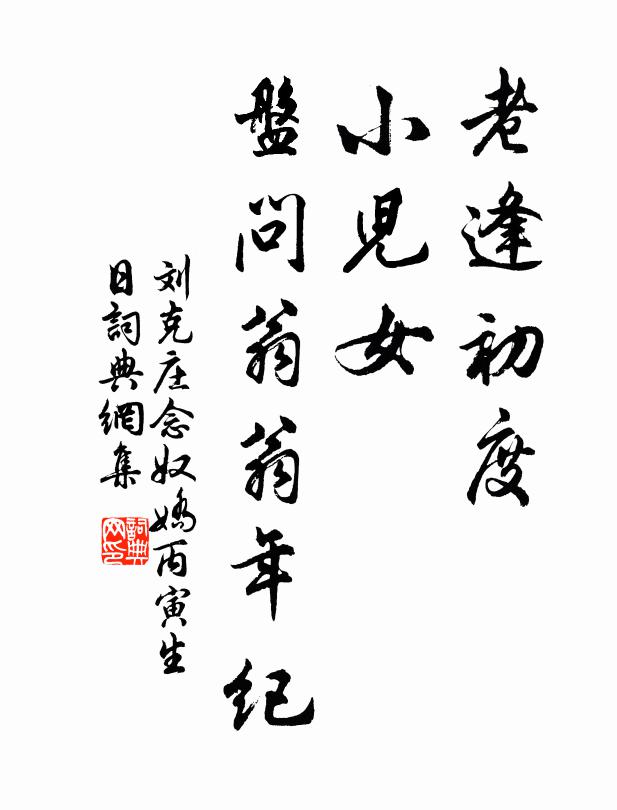 老逢初度
小兒女
盤問翁翁年紀
刘克庄念奴嬌丙寅生
日詞典網集
詞典
网印